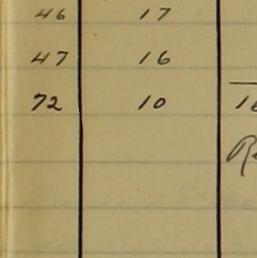 46 17
47 16
72 10